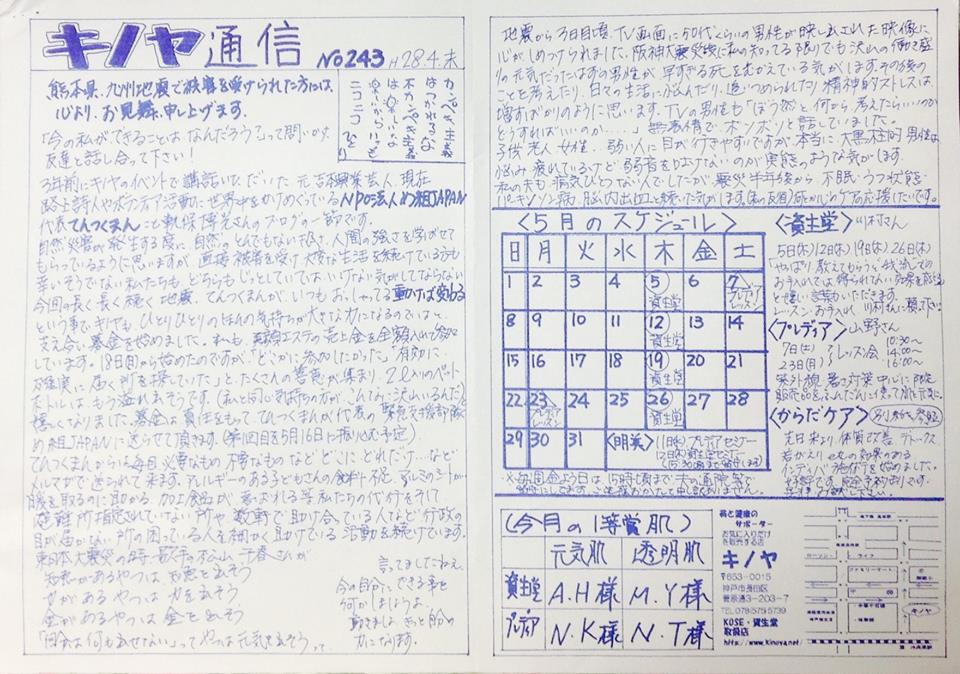 キノヤ通信 No243 H28.4.末
熊本県、九州地震で被害を受けられた方には、
心より、お見舞い申し上げます。
カッペキ主義
はつかれるな
不カンペキ主義
ニコニコ
「今の私ができることはなんだろう?」って問いかけ
友達と話し合って下さい!
3年前にキノヤのイベントで講話いただいた元吉本興業芸人、現在
路上詩人やボランティア活動に世界中をかけめぐっているNPO法人め組JAPAN
代表てんつくまんこと軌保博光さんのブログの一節です。
自然災害が発生する度に、自然のとんでもない強さ、人間の強さを学ばせて
もらっているように思いますが、直接被害を受け大変な生活を続けている方も
辛いそうでない私たちも、どちらもじっとしていてはいけない気がしてならない
今回の長く長く続く地震、てんつくまんが、いつもおっしゃってる動けば変わる
という事で、キノヤも、ひとりひとりのほんの気持ちが大きな力になるのではと、
支え合い募金を始めました。
しています。18日(月)から始めたのですが、「どこかに参加したかった」「有効に
確実に届く所を探していた」と、たくさんの善意が集まり、2ℓ入りのペット
ボトルは、もう溢れそうです。
嬉しくなりました。募金は責任をもって、てんつくまんが代表の緊急支援部隊
め組JAPANに送らせて頂きます。(第1回目を5月16日に振り込む予定)
てんつくまんからも毎日必要なもの不要なものなどどこにどれだけ…など
メルマガで送られて来ます。アレルギーのある子どもさんの食料不足、アルミのシートが
暖を取るのに助かる、加工食品が喜ばれる等 私たちの代行をそして
避難所指定されていない所や数軒で助け合っている人など行政の
目が届かない所の困っている人を細かく助けている活動を続けています。
東日本大震災の時、歌手松山千春さんが
知恵があるやつは知恵を出そう
力があるやつは力を出そう
金があるやつは金を出そう
「自分は何も出せない」ってやつは元気を出そう
言ってましたねえ。
今の自分にできる事を
何かしましょう。
動きましょう きっと自分の
力になります。
地震から3日目頃、TV画面に50代くらいの男性が映し出された映像に
心がしめつけられました。阪神大震災後に私の知ってる限りでも沢山の働き盛
りの元気だったはずの男性が早すぎる死をむかえている気がします。その後の
ことを考えたり、日々の生活に悩んだり、追いつめられたり精神的ストレスは
増すばかりのように思います。TVの男性も「ぼう然と何から考えたらいいのか
どうすればいいのか....」と無表情で、ポツポツと話していました。
子供、老人、女性、弱い人に目が行きやすいですが、本当に、大黒柱的男性は
悩み、疲れているけど弱音をはけないのが実態のような気がします。
私の夫も病気ひとつない人でしたが、震災半年後から、不眠・うつ状態
パーキンソン病、脳内出血と続いた気がします。
〈5月のスケジュール〉
日 月 火 水 木 金 土
1 2 3 4 5 資生堂 6 7 プレディア レッスン
8 9 10 11 12 資生堂 13 14
15 16 17 18 19 資生堂 20 21
22 23 プレディア レッスン 24 25 26 資生堂 27 28
29 30 31 〈明美〉 11日(水)プレディアセミナー
12日(木)資生堂セミナー
(15:30頃まで留守します)
※毎週金よう日は、15時頃まで夫の通院等で
留守にしています。ご迷惑おかけして申し訳ありません。
〈資生堂〉川村さん
5日(木)12日(木)19日(木)26日(木)
やっぱり教えてもらうと我流での
お手入れでは得られない効果を感じる
と嬉しい言葉いただきます。
レッスン・お手入れ 川村さんへ
〈プレディア〉山野さん
7日(土) レッスン会 10:30〜
23日(月) 14:00〜
16:00〜
紫外線、暑さ対策中心に限定
〈からだケア〉 別紙参照
先日来より、体質改善、デトックス
若がえり etc の効果のある
インディバ施術を始めました。
好評です。完全予約制です。
〈今月の1等賞肌〉
元気肌 透明肌
資生堂 A.H様 M.Y様
プレディア N.K様 N.T様
美と健康の
サポーター
お気に入りだけ
を販売する店
キノヤ
〒653-0015
神戸市長田区
菅原通3-203-7
TEL078-575-5739
KOSE・資生堂
取扱店
http://www.kinoya.net/
ローソン
ライフ
ファミリーマート
キノヤ